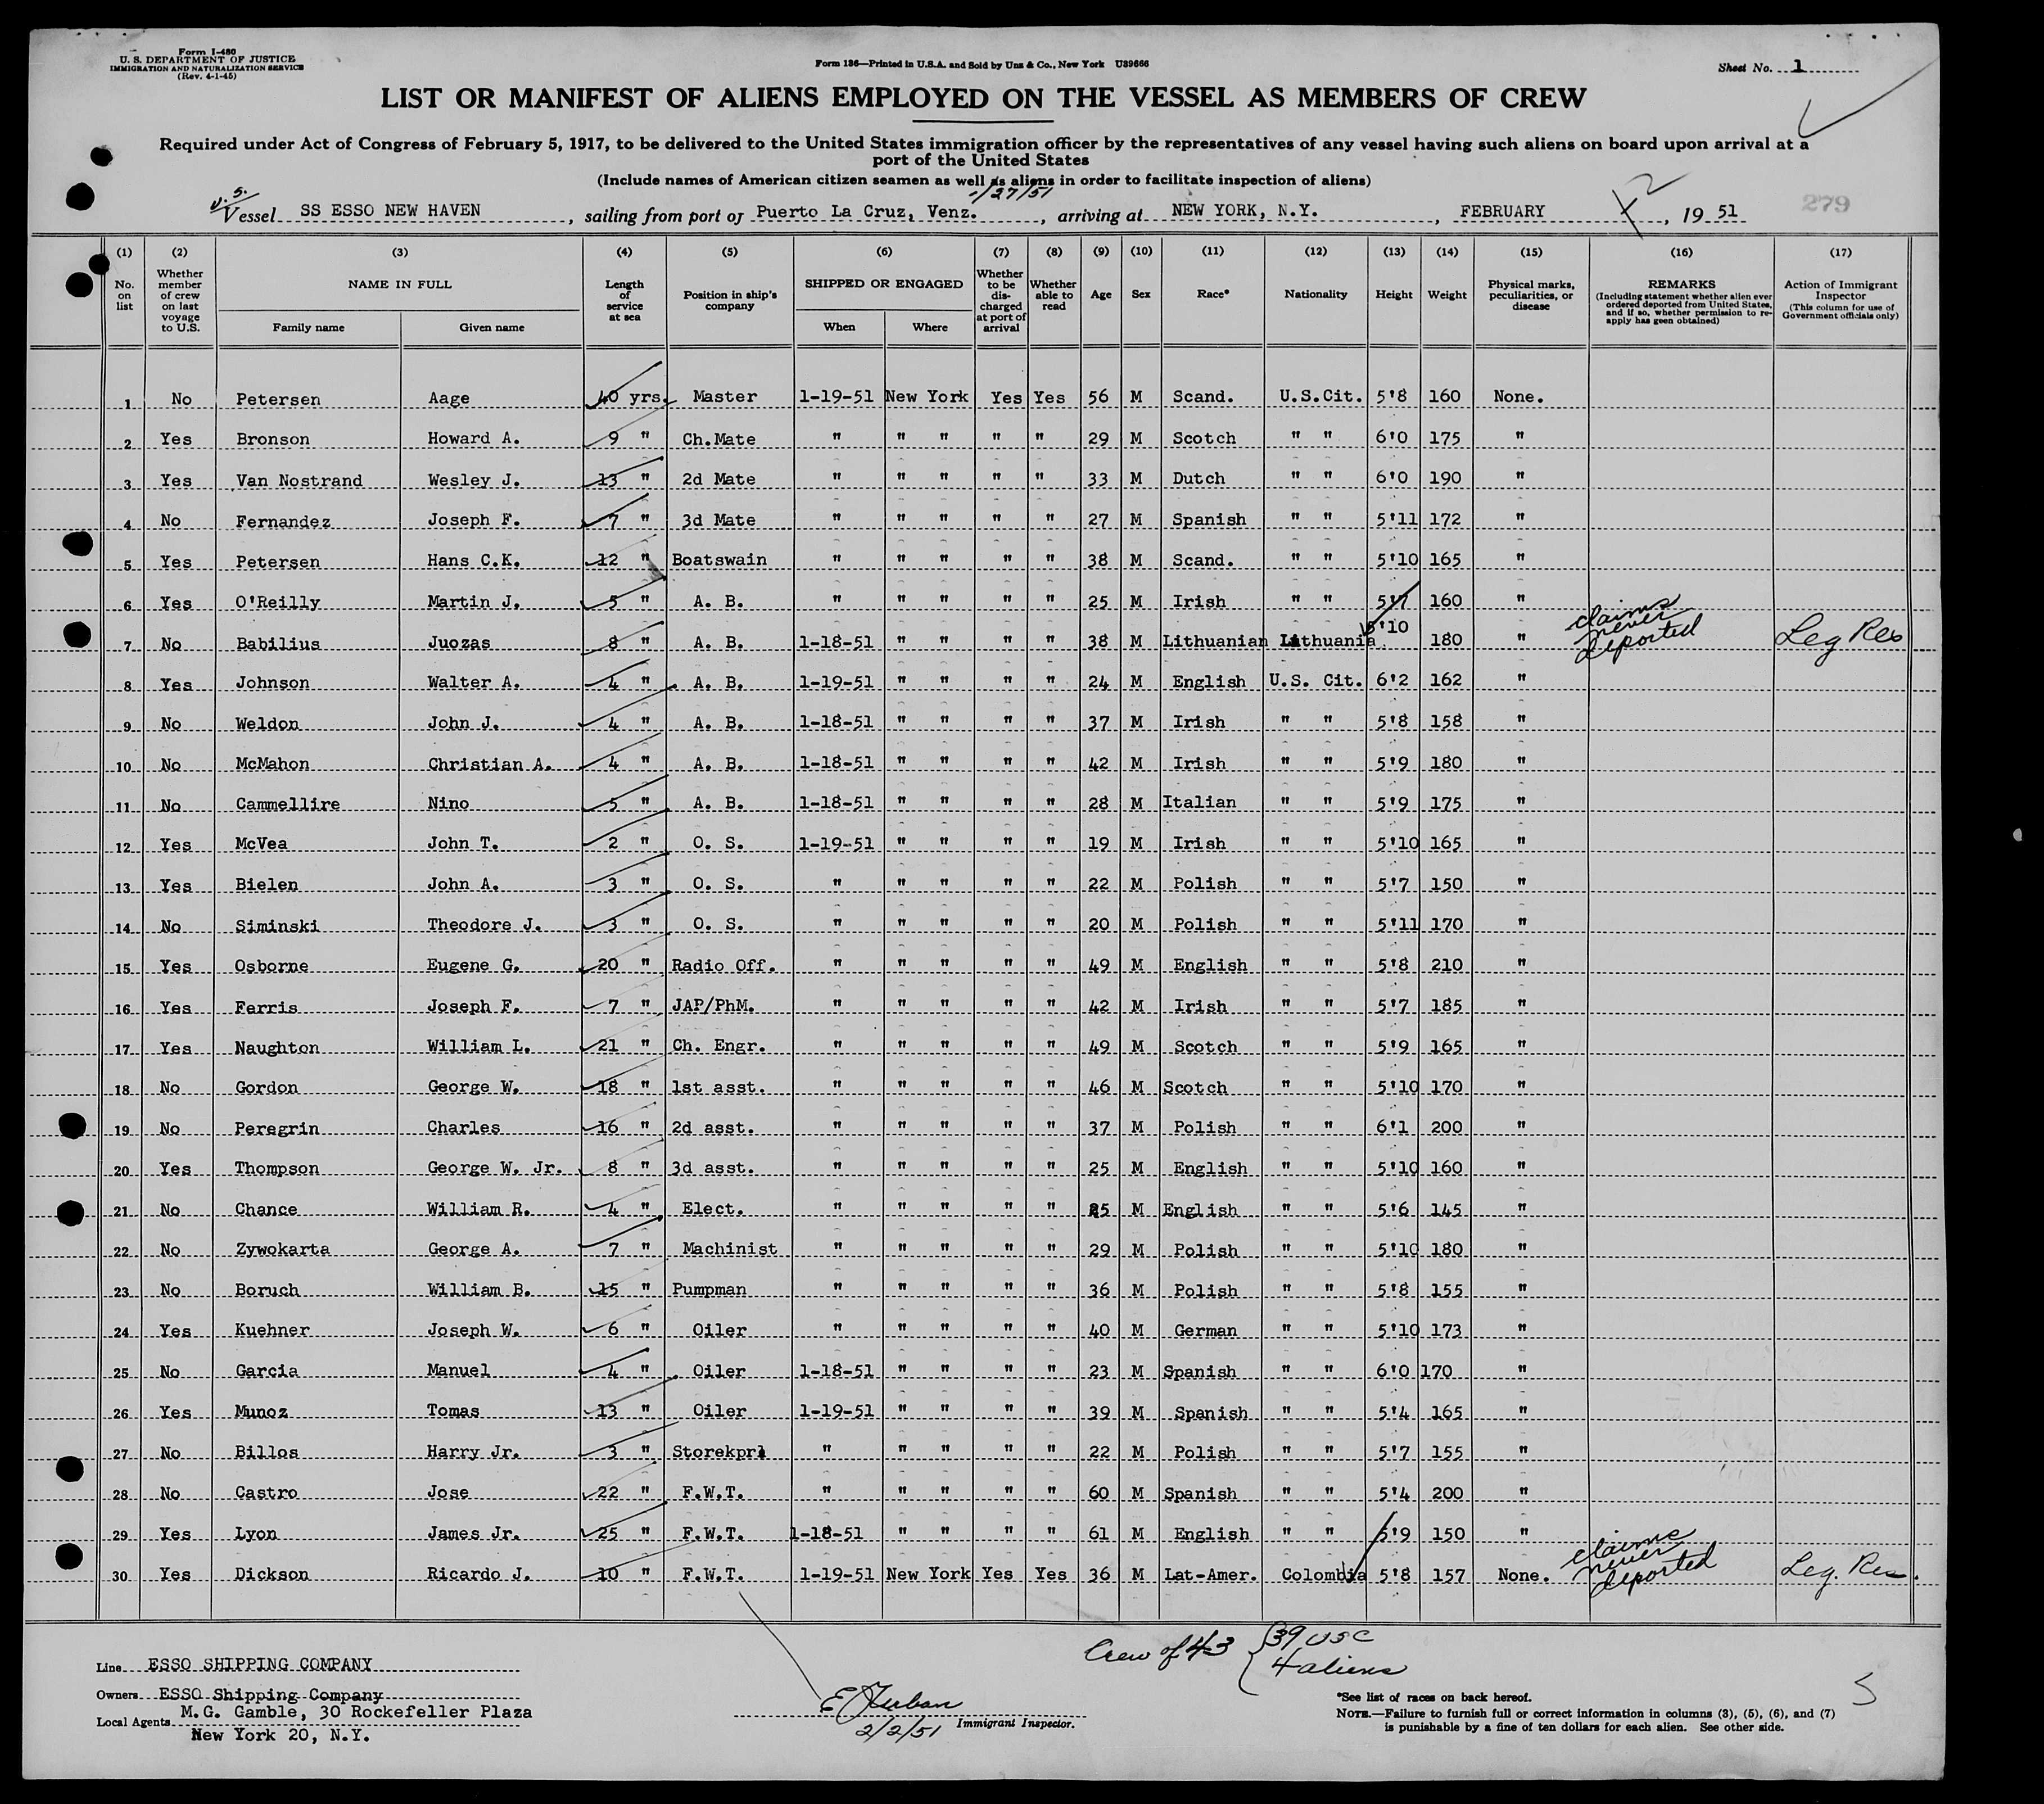 Form I-480
U. S. DEPARTMENT OF JUSTICE
IMMIGRATION AND NATURALIZATION SERVICE
(Rev. 4-1-45)
Form 186—Printed in U.S.A. and Sold by Unz & Co., New York U39666
Sheet No. 1
LIST OR MANIFEST OF ALIENS EMPLOYED ON THE VESSEL AS MEMBERS OF CREW
Required under Act of Congress of February 5, 1917, to be delivered to the United States immigration officer by the representatives of any vessel having such aliens on board upon arrival at a
port of the United States
(Include names of American citizen seamen as well as aliens in order to facilitate inspection of aliens)
U.S. 1/27/51
Vessel SS ESSO NEW HAVEN, sailing from port of Puerto La Cruz, Venz., arriving at NEW YORK, N.Y., FEBRUARY 2, 19 51 279
(1) (2) (3) (4) (5) (6) (7) (8) (9) (10) (11) (12) (13) (14) (15) (16) (17)
No. on list Whether member of crew on last voyage to U.S. NAME IN FULL Family name Given name Length of service at sea Position in ship's company SHIPPED OR ENGAGED When Where Whether to be discharged at port of arrival Whether able to read Age Sex Race* Nationality Height Weight Physical marks, peculiarities, or disease REMARKS (Including statement whether alien ever ordered deported from United States, and if so, whether permission to re-apply has geen obtained) Action of Immigrant Inspector (This column for use of Government officials only)
1 No Petersen Aage 40 yrs. Master 1-19-51 New York Yes Yes 56 M Scand. U.S.Cit. 5'8 160 None.
2 Yes Bronson Howard A. 9 " Ch.Mate " " " " " 29 M Scotch " " 6'0 175 "
3 Yes Van Nostrand Wesley J. 13 " 2d Mate " " " " " 33 M Dutch " " 6'0 190 "
4 No Fernandez Joseph F. 7 " 3d Mate " " " " " 27 M Spanish " " 5'11 172 "
5 Yes Petersen Hans C.K. 12 " Boatswain " " " " " 38 M Scand. " " 5'10 165 "
6 Yes O'Reilly Martin J. 5 " A. B. " " " " " 25 M Irish " " 5'7 160 "
7 No Babilius Juozas 8 " A. B. 1-18-51 " " " " 38 M Lithuanian Lithuania 5'10 180 " claims never deported Leg Res
8 Yes Johnson Walter A. 4 " A. B. 1-19-51 " " " " 24 M English U.S. Cit. 6'2 162 "
9 No Weldon John J. 4 " A. B. 1-18-51 " " " " 37 M Irish " " 5'8 158 "
10 No McMahon Christian A. 4 " A. B. 1-18-51 " " " " 42 M Irish " " 5'9 180 "
11 No Cammellire Nino 5 " A. B. 1-18-51 " " " " 28 M Italian " " 5'9 175 "
12 Yes McVea John T. 2 " O. S. 1-19-51 " " " " 19 M Irish " " 5'10 165 "
13 Yes Bielen John A. 3 " O. S. " " " " " 22 M Polish " " 5'7 150 "
14 No Siminski Theodore J. 3 " O. S. " " " " " 20 M Polish " " 5'11 170 "
15 Yes Osborne Eugene G. 20 " Radio Off. " " " " " 49 M English " " 5'8 210 "
16 Yes Ferris Joseph F. 7 " JAP/PhM. " " " " " 42 M Irish " " 5'7 185 "
17 Yes Naughton William L. 21 " Ch. Engr. " " " " " 49 M Scotch " " 5'9 165 "
18 No Gordon George W. 18 " 1st asst. " " " " " 46 M Scotch " " 5'10 170 "
19 No Peregrin Charles 16 " 2d asst. " " " " " 37 M Polish " " 6'1 200 "
20 Yes Thompson George W. Jr. 8 " 3d asst. " " " " " 25 M English " " 5'10 160 "
21 No Chance William R. 4 " Elect. " " " " " 25 M English " " 5'6 145 "
22 No Zywokarta George A. 7 " Machinist " " " " " 29 M Polish " " 5'10 180 "
23 No Boruch William B. 15 " Pumpman " " " " " 36 M Polish " " 5'8 155 "
24 Yes Kuehner Joseph W. 6 " Oiler " " " " " 40 M German " " 5'10 173 "
25 No Garcia Manuel 4 " Oiler 1-18-51 " " " " 23 M Spanish " " 6'0 170 "
26 Yes Munoz Tomas 13 " Oiler 1-19-51 " " " " 39 M Spanish " " 5'4 165 "
27 No Billos Harry Jr. 3 " Storekpr. " " " " " 22 M Polish " " 5'7 155 "
28 No Castro Jose 22 " F.W.T. " " " " " 60 M Spanish " " 5'4 200 "
29 Yes Lyon James Jr. 25 " F.W.T. 1-18-51 " " " " 61 M English " " 5'9 150 "
30 Yes Dickson Ricardo J. 10 " F.W.T. 1-19-51 New York Yes Yes 36 M Lat-Amer. Colombia 5'8 157 None. claims never deported Leg. Res.
Crew of 43 { 39 USC
4 aliens
Line ESSO SHIPPING COMPANY
Owners ESSO Shipping Company
Local Agents M.G. Gamble, 30 Rockefeller Plaza
New York 20, N.Y.
2/2/51 Immigrant Inspector.
*See list of races on back hereof.
NOTE.—Failure to furnish full or correct information in columns (3), (5), (6), and (7)
is punishable by a fine of ten dollars for each alien. See other side.